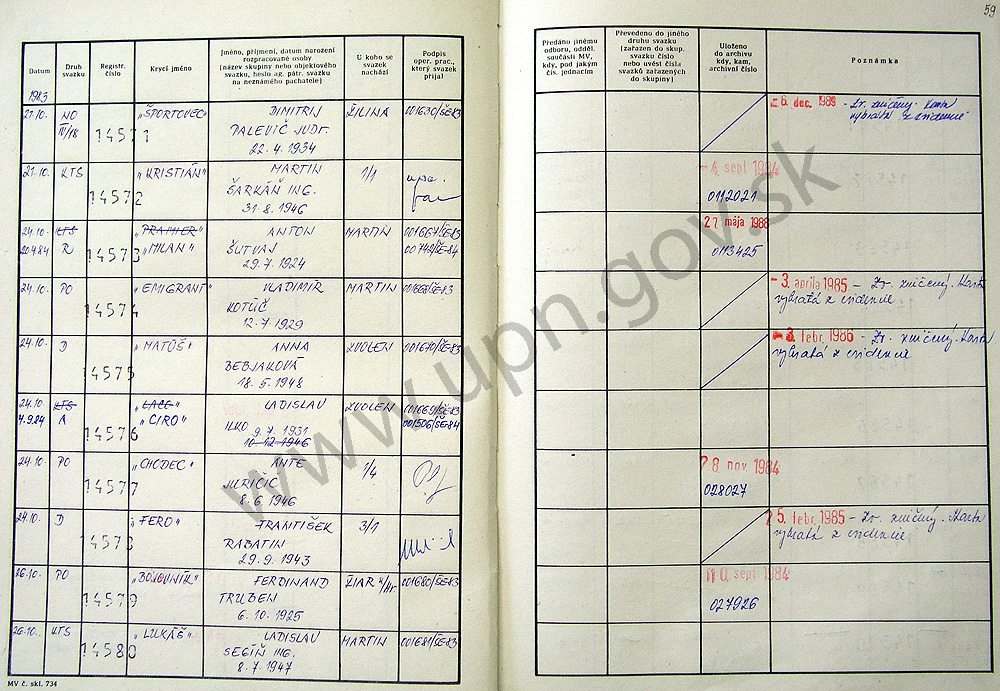 59
Datum
Druh svazku
Registr. číslo
Krycí jméno
Jméno, příjmení, datum narození
rozpracované osoby
(název skupiny nebo objektového
svazku, heslo ag. pátr. svazku
na neznámého pachatele)
U koho se
svazek
nachází
Podpis
oper. prac.,
který svazek
přijal
Předáno jinému
odboru, odděl.
součásti MV,
kdy, pod jakým
čís. jednacím
Převedeno do jiného
druhu svazku
(zařazen do skup.
svazku číslo
nebo uvést čísla
svazků zařazených
do skupiny)
Uloženo
do archivu
kdy, kam,
archivní číslo
Poznámka
1983
21.10. NO 14571 "ŠPORTOVEC" DIMITRIJ ŽILINA 001630/ŠE-83 - 6. dec. 1989 - Zv. zničený. Karta
IV/18 PALEVIČ JUDr. vybratá z evidencie
22.4.1934
21.10. KTS 14572 "KRISTIÁN" MARTIN 1/1 - 4. sept 1984
ŠARKÁŇ ING. 0112021
31.8.1946
24.10. KTS 14573 "PRAMER" ANTON MARTIN 001667/ŠE-83 27 mája 1988
20.4.84 R "MILAN" ŠUTVAJ 00742/ŠE-84 0113425
29.7.1924
24.10. PO 14574 "EMIGRANT" VLADIMÍR MARTIN 001668/ŠE-83 - 3. apríla 1985 - Zv. zničený. Karta
KOTÚČ vybratá z evidencie
12.7.1929
24.10. D 14575 "MATÚŠ" ANNA ZVOLEN 001670/ŠE-83 - 3. febr. 1986 - Zv. zničený. Karta
BEBJAKOVÁ vybratá z evidencie
18.5.1948
24.10. KTS 14576 "LACO" LADISLAV ZVOLEN 001669/ŠE-83
4.9.84 A "CIRO" ILKO 9.7.1931 001506/ŠE-84
10.12.1946
24.10. PO 14577 "CHODEC" ANTE 1/4 8. nov 1984
JURIČIČ 028027
8.6.1946
24.10. D 14578 "FERO" FRANTIŠEK 3/1 5. febr. 1985 - Zv. zničený. Karta
RABATIN vybratá z evidencie
29.9.1943
26.10. PO 14579 "BOJOVNÍK" FERDINAND ŽIAR n/Hr. 001680/ŠE-83 10. sept 1984
TRUBEN 027926
6.10.1925
26.10. KTS 14580 "LUKÁŠ" LADISLAV MARTIN 001681/ŠE-83
SEGIŇ ING.
8.7.1947
MV č. skl. 734
www.upn.gov.sk